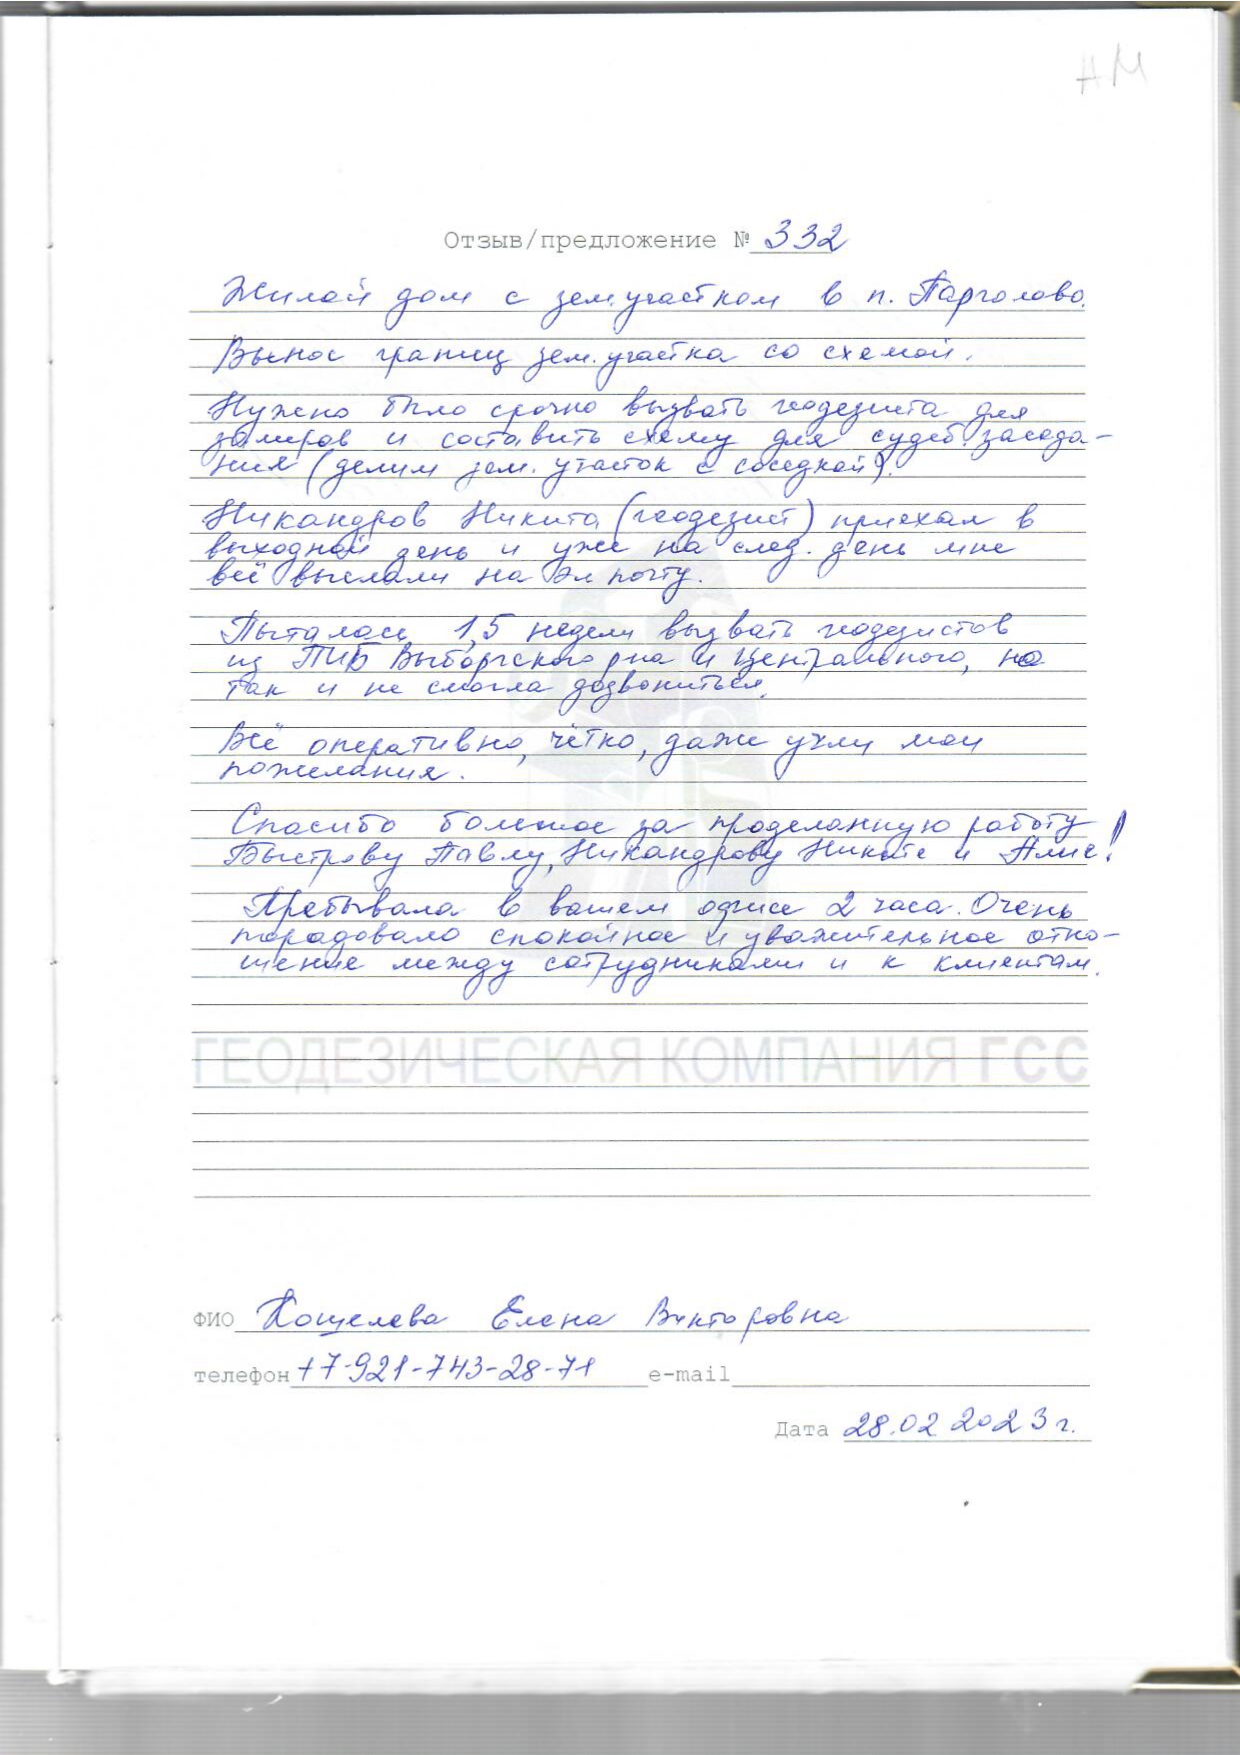 АМ
Отзыв/предложение № 332
Жилой дом с зем.участком в п. Парголово.
Вынос границ зем.участка со схемой.
Нужно было срочно вызвать геодезиста для
замеров и составить схему для судеб. заседа-
ния (делим зем. участок с соседкой).
Никандров Никита (геодезист) приехал в
выходной день и уже на след. день мне
всё выслали на эл почту.
Пыталась 1,5 недели вызвать геодезистов
из ПИБ Выборгского рна и Центрального, но
так и не смогла дозвониться.
Всё оперативно, чётко, даже учли мои
пожелания.
Спасибо большое за проделанную работу
Быстрову Павлу, Никандрову Никите и Алисе!
Пребывала в вашем офисе 2 часа. Очень
порадовало спокойное и уважительное отно-
шение между сотрудниками и к клиентам.
ГЕОДЕЗИЧЕСКАЯ КОМПАНИЯ ГСС
ФИО Кошелева Елена Викторовна
телефон +7-921-743-28-71 e-mail
Дата 28.02 2023 г.